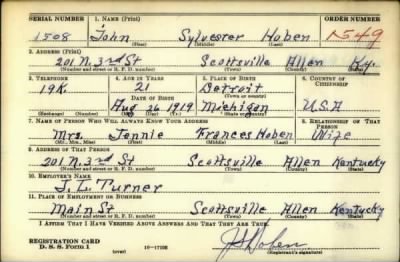 SERIAL NUMBER 1. NAME (Print) ORDER NUMBER
1508 John Sylvester Hoben 1549
(First) (Middle) (Last)
2. ADDRESS (Print)
201 N. 3rd St Scottsville Allen Ky.
(Number and street or R. F. D. number) (Town) (County) (State)
3. TELEPHONE 4. AGE IN YEARS 5. PLACE OF BIRTH 6. COUNTRY OF CITIZENSHIP
19K. 21 Detroit
DATE OF BIRTH (Town or county)
Aug 26 1919 Michigan U.S.A
(Exchange) (Number) (Mo.) (Day) (Yr.) (State or country)
7. NAME OF PERSON WHO WILL ALWAYS KNOW YOUR ADDRESS 8. RELATIONSHIP OF THAT PERSON
Mrs. Jennie Frances Hoben Wife
(Mr., Mrs., Miss) (First) (Middle) (Last)
9. ADDRESS OF THAT PERSON
201 N. 3rd St Scottsville Allen Kentucky
(Number and street or R. F. D. number) (Town) (County) (State)
10. EMPLOYER'S NAME
J. L. Turner
11. PLACE OF EMPLOYMENT OR BUSINESS
Main St Scottsville Allen Kentucky
(Number and street or R. F. D. number) (Town) (County) (State)
I AFFIRM THAT I HAVE VERIFIED ABOVE ANSWERS AND THAT THEY ARE TRUE.
REGISTRATION CARD
D. S. S. Form 1 (over) 16-17105 JS Hoben
(Registrant's signature)